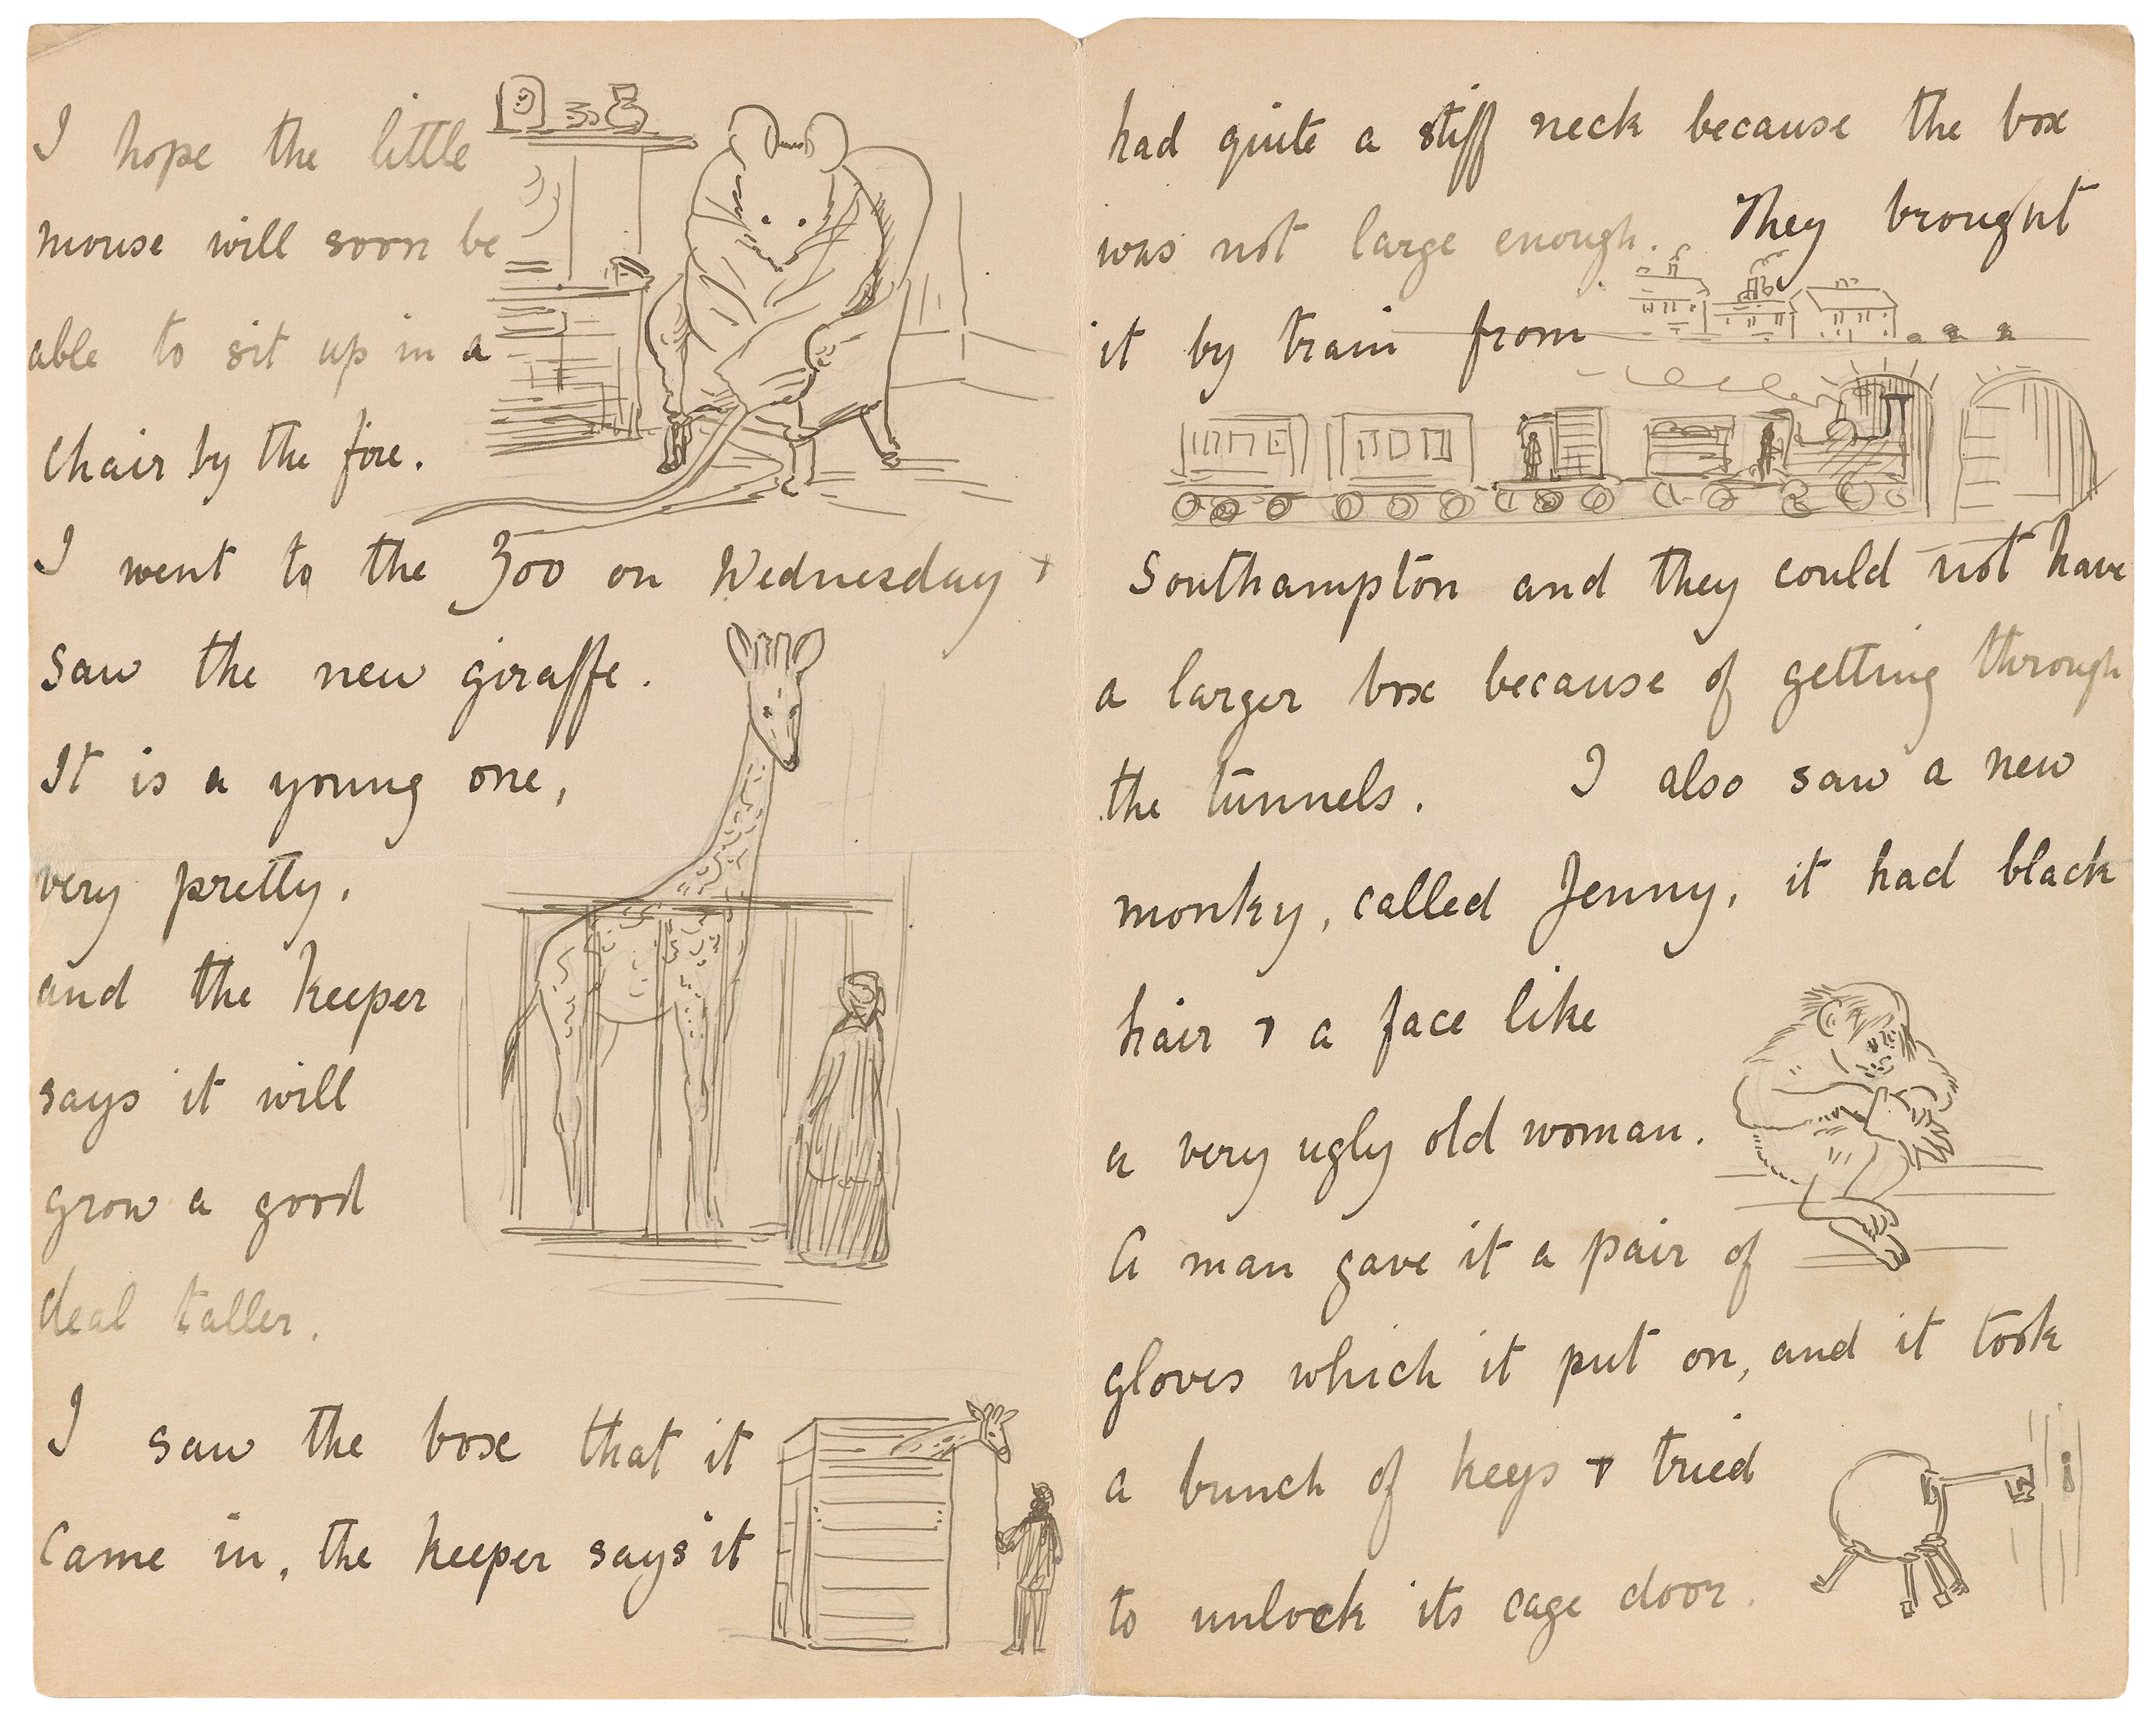 I hope the little
mouse will soon be
able to sit up in a
chair by the fire.
I went to the Zoo on Wednesday +
saw the new giraffe.
It is a young one,
very pretty,
and the keeper
says it will
grow a good
deal taller.
I saw the box that it
came in, the keeper says it
had quite a stiff neck because the box
was not large enough. They brought
it by train from
Southampton and they could not have
a larger box because of getting through
the tunnels. I also saw a new
monky, called Jenny, it had black
hair + a face like
a very ugly old woman.
A man gave it a pair of
gloves which it put on, and it took
a bunch of keys + tried
to unlock its cage door.